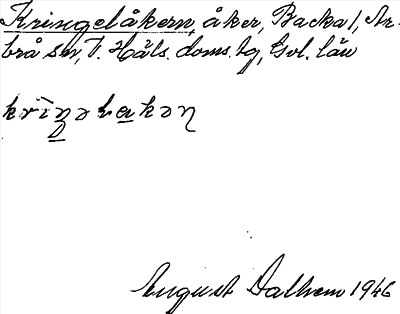 Kringelåkern, åker, Backa 1, Ar-
brå sn, V. Häls. doms. tg, Gvl. län
August Dalhem 1946